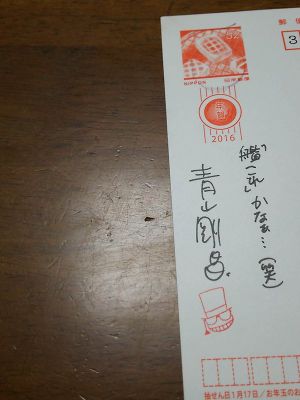 郵便
3
52
NIPPON 日本郵便
年賀
2016
「艦これ」かなぁ…(笑)
青山剛昌
抽せん日1月17日/お年玉のお